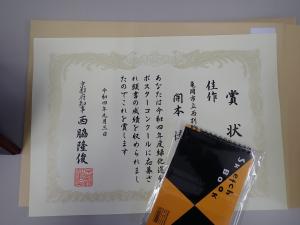 賞状
佳作
亀岡市立
あなたは令和四年度緑化運動
ポスターコンクールに応募さ
れ頭書の成績を収められまし
たのでこれを賞します
令和四年九月三日
京都府知事 西脇隆俊
Sketch
BOOK